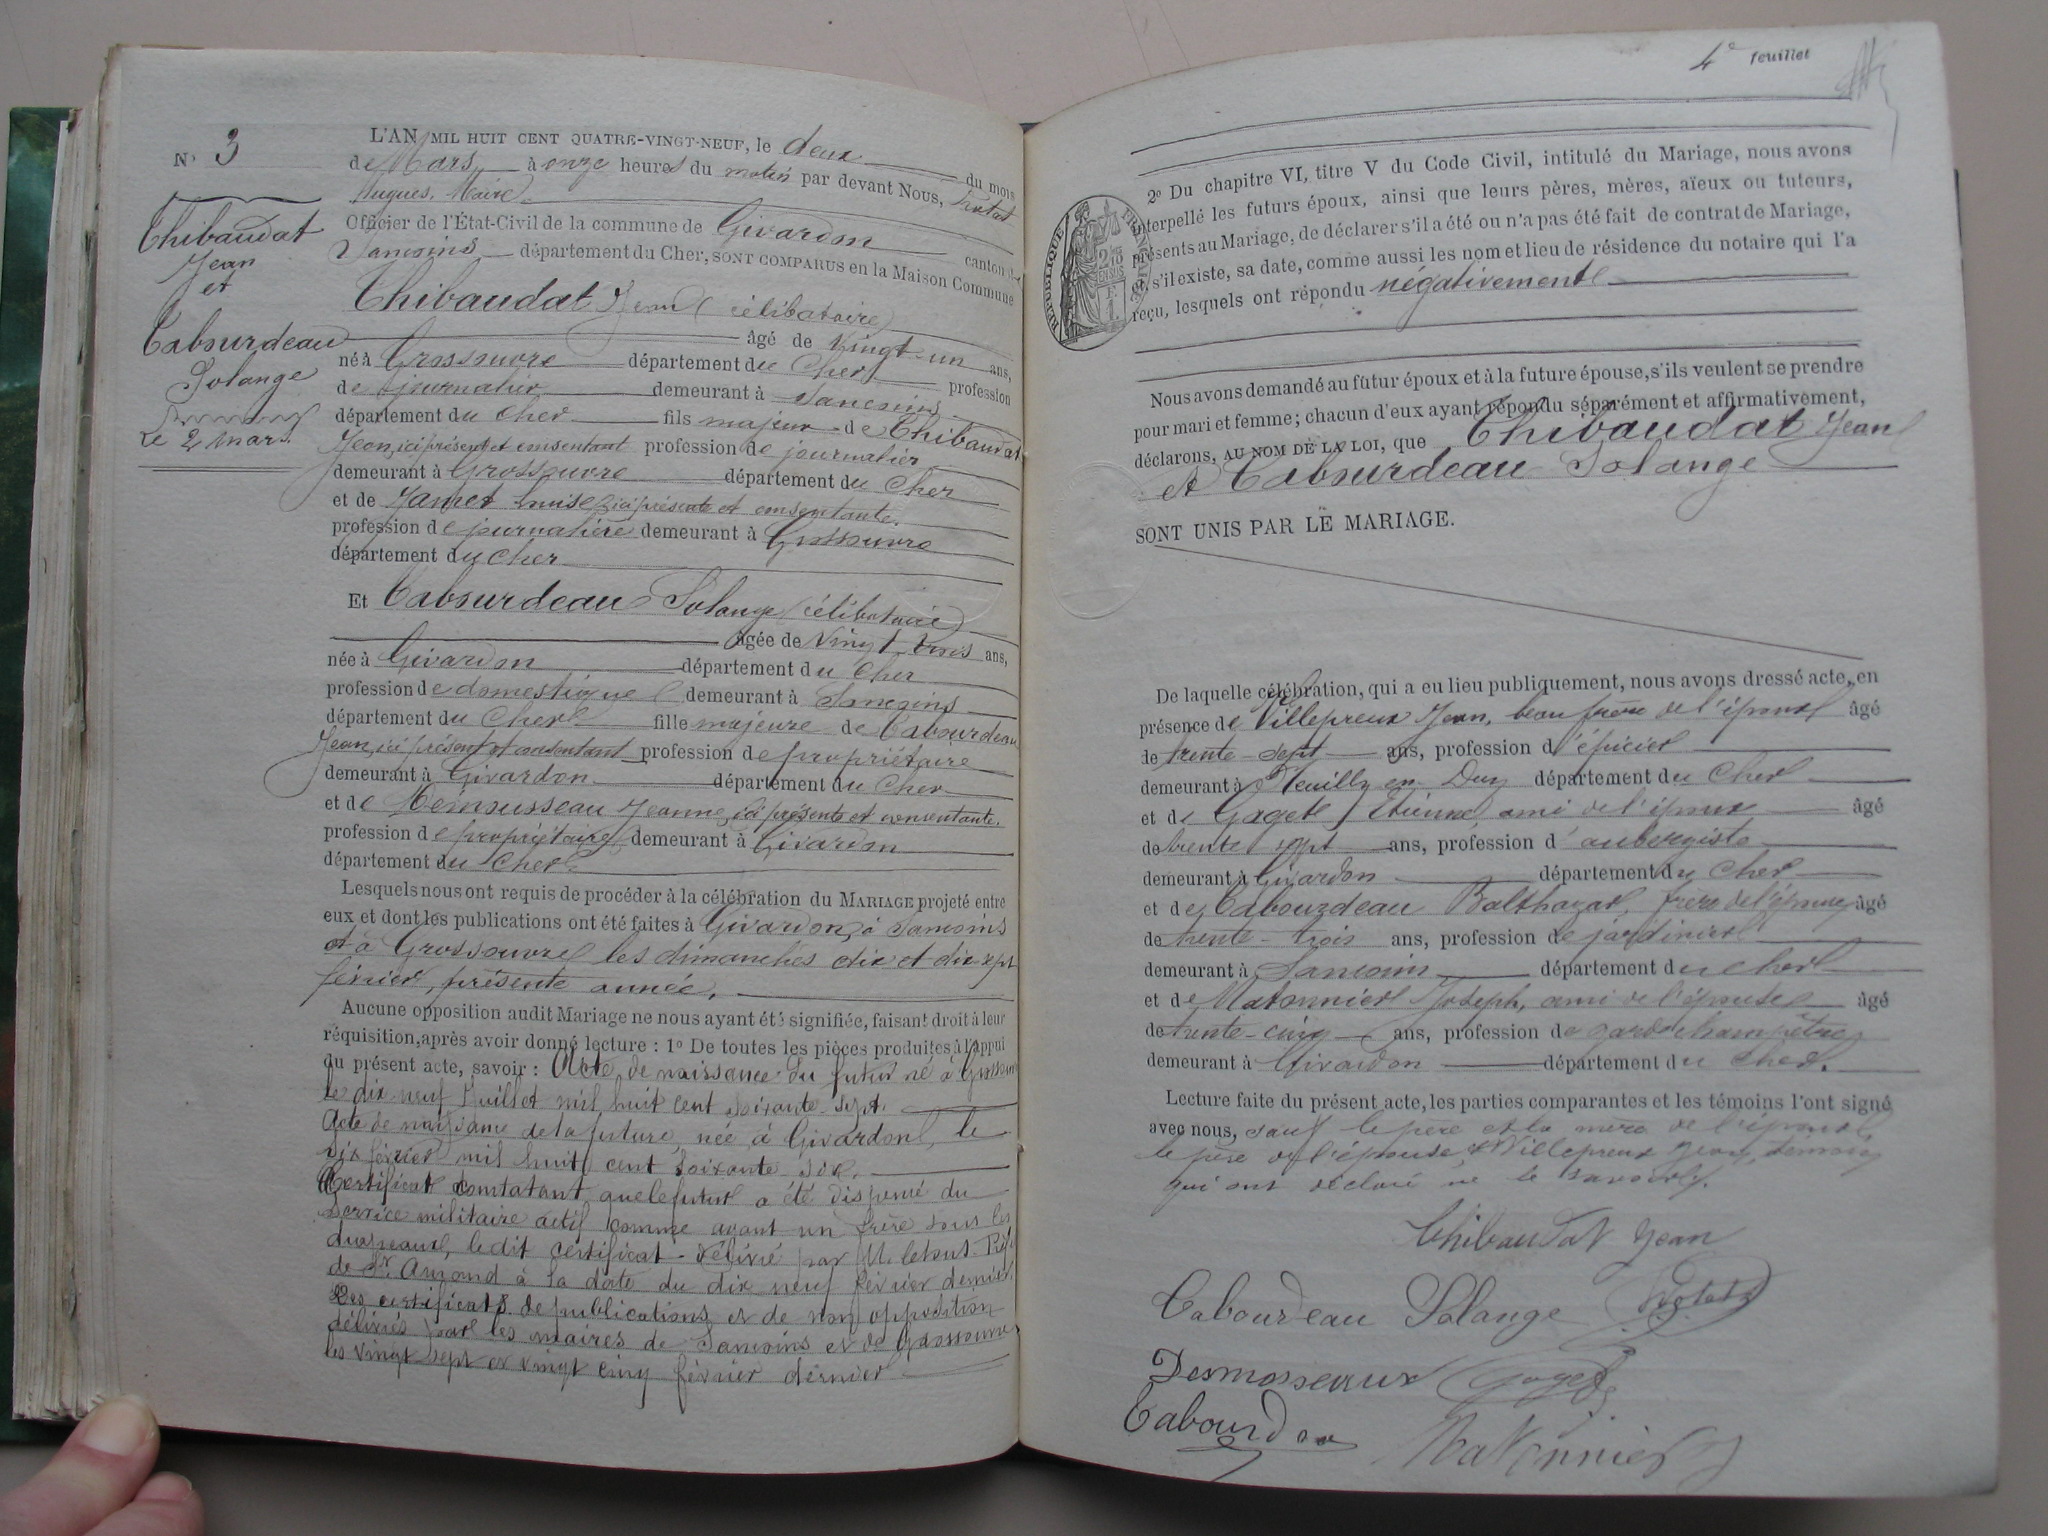 N° 3
Thibaudat
Jean
et
Cabourdeau
Solange
Le 2 Mars.
L'AN MIL HUIT CENT QUATRE-VINGT-NEUF, le deux du mois
de Mars à onze heures du matin par devant Nous, Protat
Hugues, Maire
Officier de l'État-Civil de la commune de Givardon canton de
Sancoins département du Cher, SONT COMPARUS en la Maison Commune
Thibaudat Jean (célibataire)
âgé de vingt-un ans,
né à Grossouvre département du Cher profession
de journalier demeurant à Sancoins
département du Cher fils majeur de Thibaudat
Jean, ici présent et consentant profession de journalier
demeurant à Grossouvre département du Cher
et de Jamet Louise, ici présente et consentante.
profession de journalière demeurant à Grossouvre
département du Cher
Et Cabourdeau Solange (célibataire)
âgée de vingt trois ans,
née à Givardon département du Cher
profession de domestique demeurant à Sancoins
département du Cher fille majeure de Cabourdeau
Jean, ici présent et consentant profession de propriétaire
demeurant à Givardon département du Cher
et de Demousseau Jeanne, ici présente et consentante.
profession de propriétaire demeurant à Givardon
département du Cher
Lesquels nous ont requis de procéder à la célébration du MARIAGE projeté entre
eux et dont les publications ont été faites à Givardon, à Sancoins
et à Grossouvre les dimanches dix et dix sept
février, présente année.
Aucune opposition audit Mariage ne nous ayant été signifiée, faisant droit à leur
réquisition, après avoir donné lecture : 1° De toutes les pièces produites à l'appui
du présent acte, savoir : Acte de naissance du futur né à Grossouvre
le dix neuf Juillet mil huit cent soixante-sept.
Acte de naissance de la future, née à Givardon, le
dix février mil huit cent soixante six.
Certificat constatant que le futur a été dispensé du
service militaire actif comme ayant un frère sous les
drapeaux, ledit certificat délivré par M. le Sous-Préfet
de St Amand à la date du dix neuf février dernier.
Les certificats de publications et de non opposition
délivrés par les maires de Sancoins et de Grossouvre
les vingt sept et vingt cinq février dernier
4e feuillet
RÉPUBLIQUE FRANÇAISE
2° Du chapitre VI, titre V du Code Civil, intitulé du Mariage, nous avons
interpellé les futurs époux, ainsi que leurs pères, mères, aïeux ou tuteurs,
présents au Mariage, de déclarer s'il a été ou n'a pas été fait de contrat de Mariage,
et, s'il existe, sa date, comme aussi les nom et lieu de résidence du notaire qui l'a
reçu, lesquels ont répondu négativement
Nous avons demandé au futur époux et à la future épouse, s'ils veulent se prendre
pour mari et femme ; chacun d'eux ayant répondu séparément et affirmativement,
déclarons, AU NOM DE LA LOI, que Thibaudat Jean
et Cabourdeau Solange
SONT UNIS PAR LE MARIAGE.
De laquelle célébration, qui a eu lieu publiquement, nous avons dressé acte, en
présence de Villepreux Jean, beau frère de l'époux âgé
de trente-sept ans, profession d'épicier
demeurant à Neuilly en Dun département du Cher
et de Gaget Etienne ami de l'époux âgé
de trente sept ans, profession d'aubergiste
demeurant à Givardon département du Cher
et de Cabourdeau Balthazar, frère de l'épouse âgé
de trente-trois ans, profession de jardinier
demeurant à Sancoins département du Cher
et de Matonnier Joseph, ami de l'épouse âgé
de trente-cinq ans, profession de garde champêtre
demeurant à Givardon département du Cher.
Lecture faite du présent acte, les parties comparantes et les témoins l'ont signé
avec nous, sauf le père et la mère de l'époux,
le père de l'épouse et Villepreux Jean, témoin
qui ont déclaré ne le savoir.
Thibaudat Jean
Cabourdeau Solange Protat
Desmosseaux Gaget
Cabourdeau Matonnier